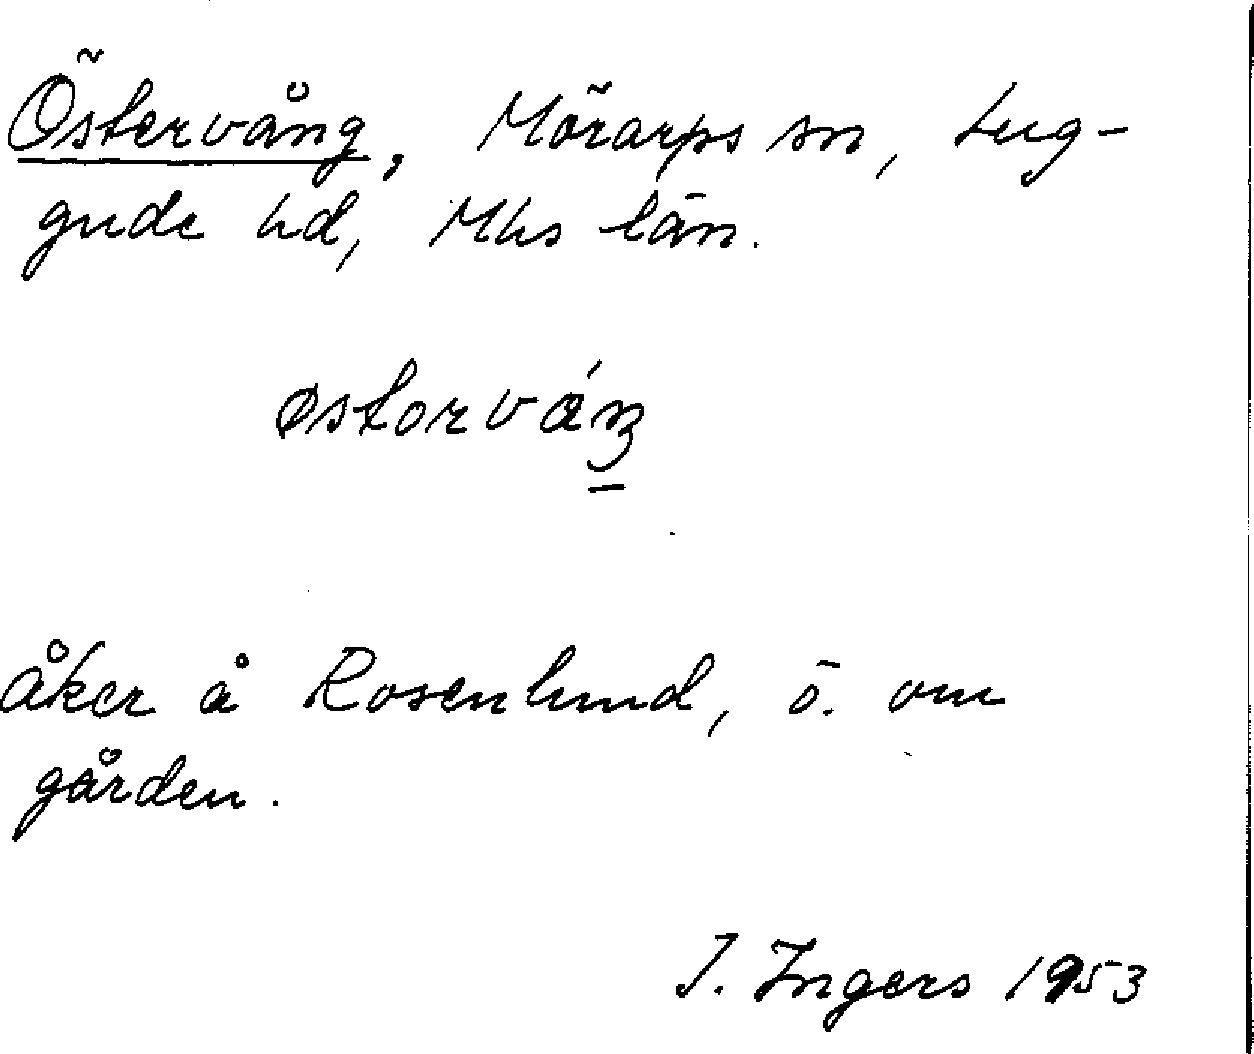 Östervång, Mörarps sn, Lug-
gude hd, Mhs län.
østorváŋ
åker å Rosenlund, ö. om
gården.
I. Ingers 1953